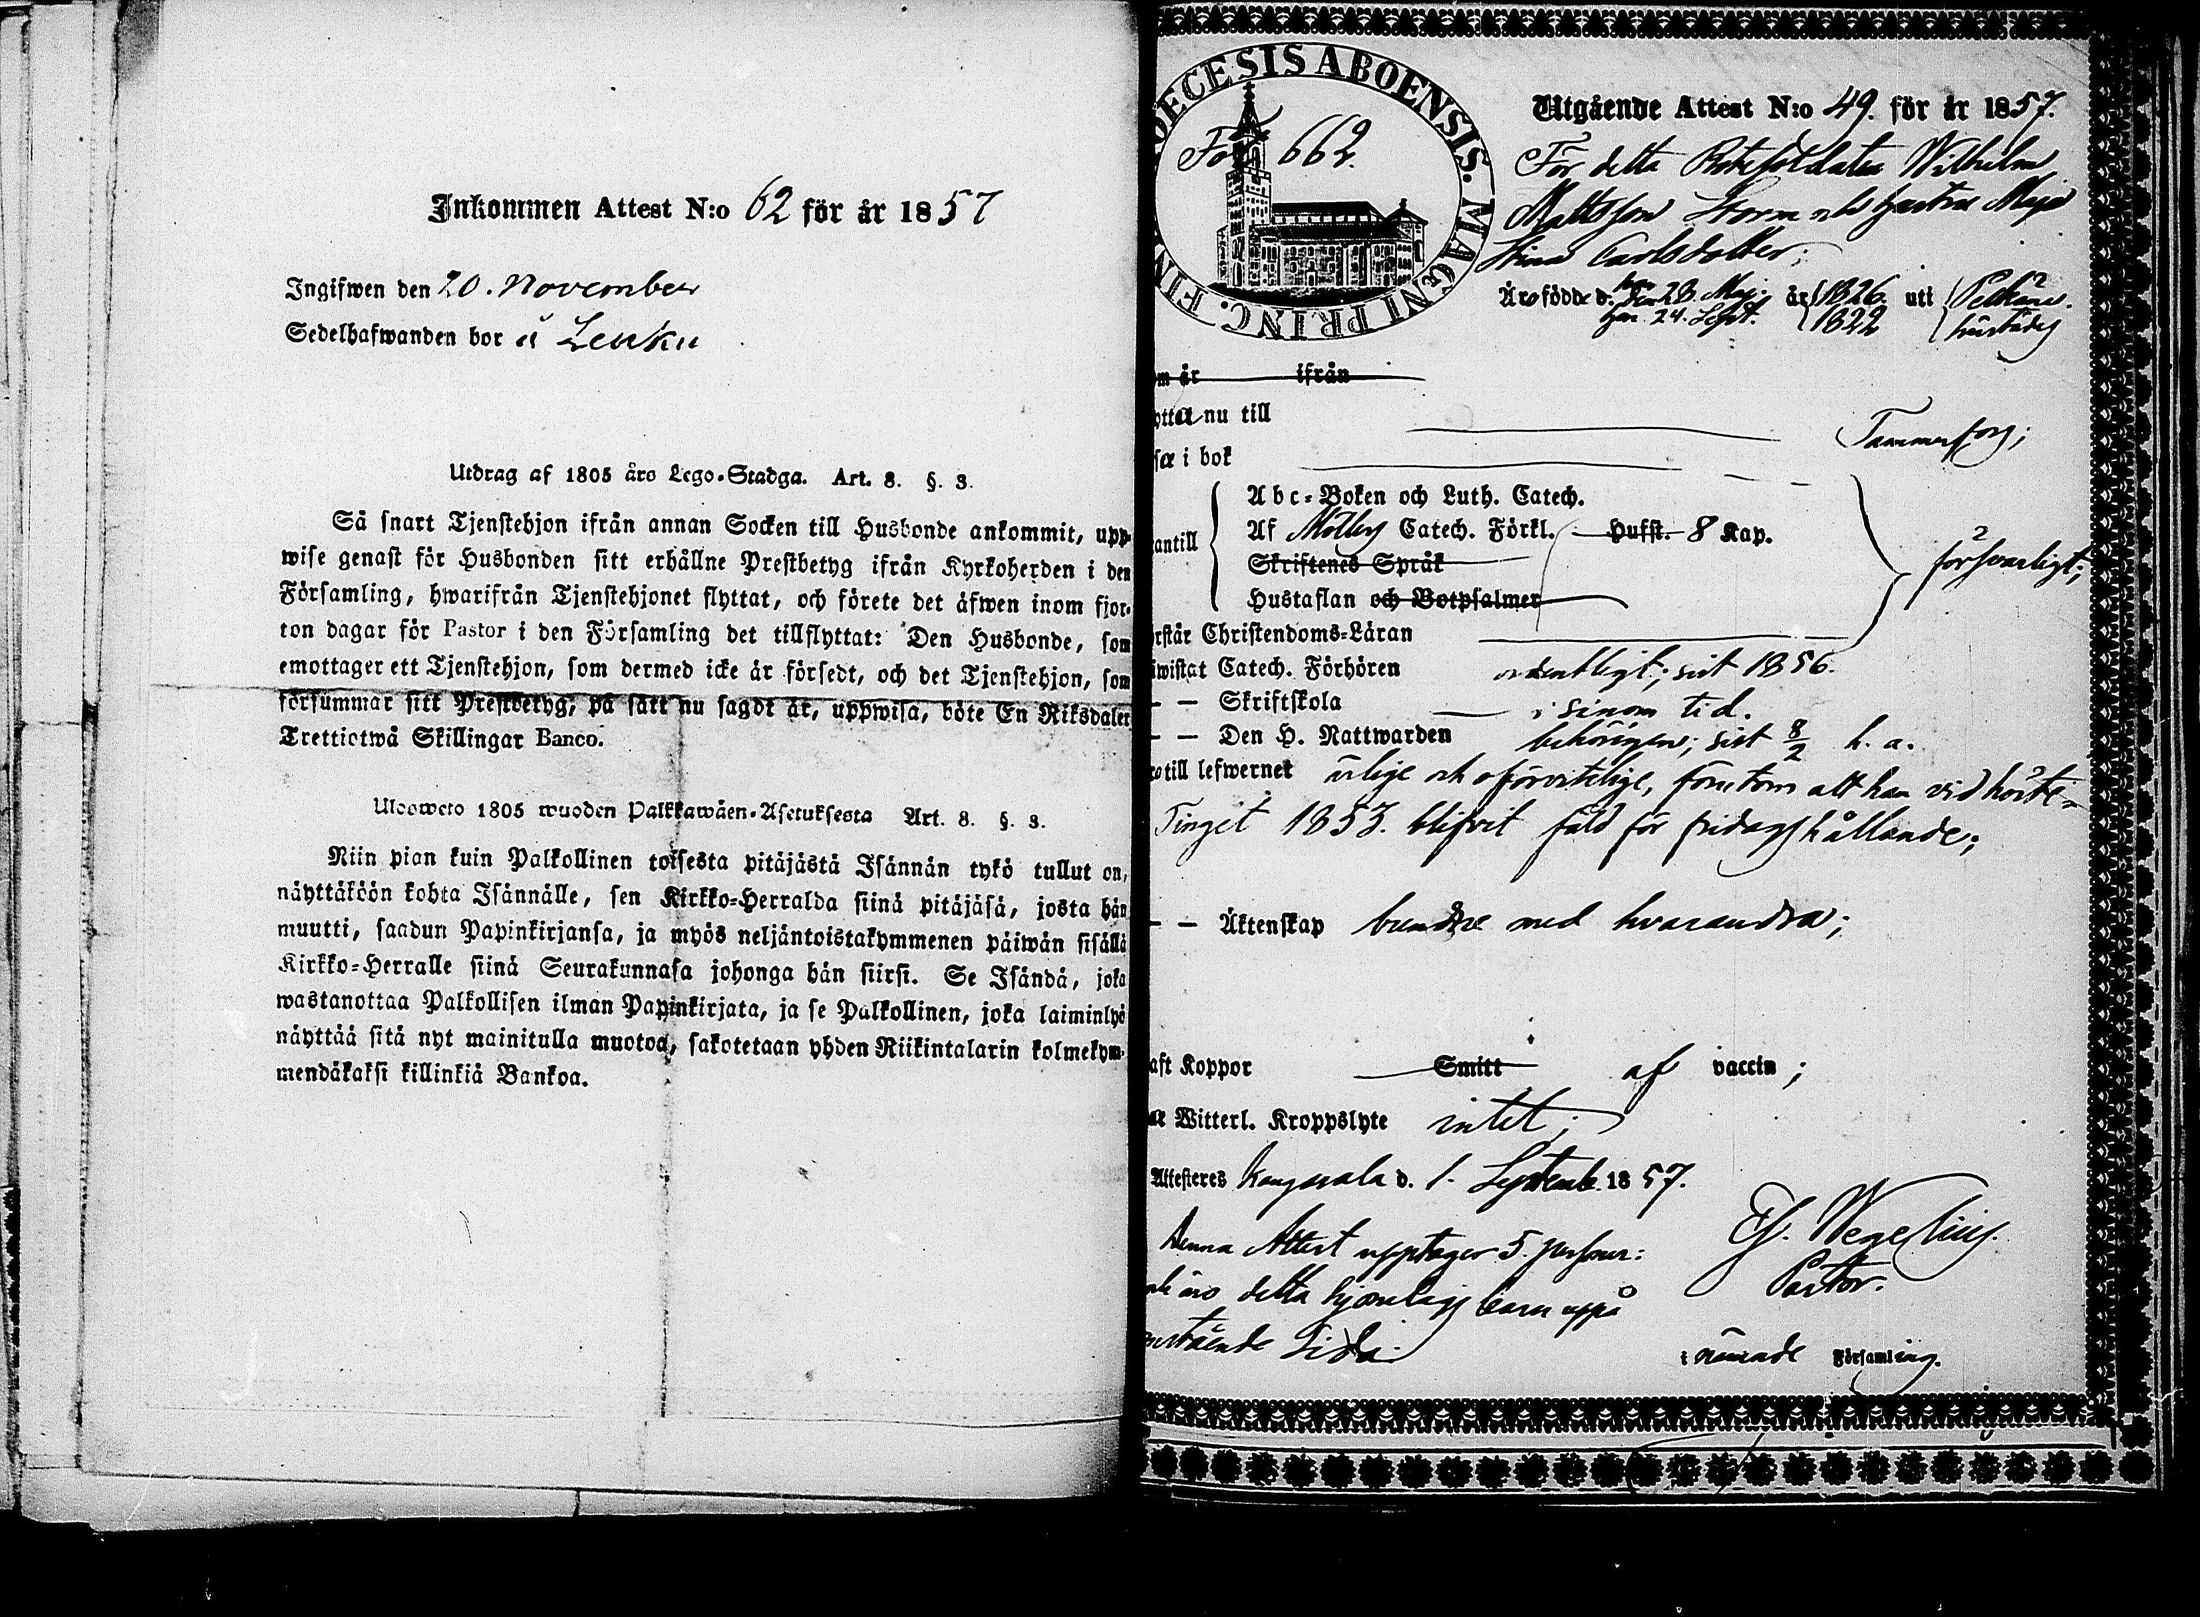 Inkommen Attest N:o 62 för år 1857
Ingifwen den 20. November
Sedelhafwanden bor å
Utdrag af 1805 års Lego-Stadga. Art. 8. §. 3.
Så snart Tjenstehjon ifrån annan Socken till Husbonde ankommit, upp-
wise genast för Husbonden sitt erhållne Prestbetyg ifrån Kyrkoherden i den
Församling, hwarifrån Tjenstehjonet flyttat, och förete det äfwen inom fjor-
ton dagar för Pastor i den Församling det tillflyttat: Den Husbonde, som
emottager ett Tjenstehjon, som dermed icke är försedt, och det Tjenstehjon, som
försummar sitt Prestbetyg, på sätt nu sagdt är, uppwisa, böte En Riksdaler
Trettiotwå Skillingar Banco.
Ulosweto 1805 wuoden Palkkawäen-Asetuksesta Art. 8. §. 3.
Niin pian kuin Palkollinen toisesta pitäjästä Isännän tykö tullut on,
näyttäköön kohta Isännälle, sen Kirkko-Herralda siinä pitäjäsä, josta hän
muutti, saadun Papinkirjansa, ja myös neljäntoistakymmenen päiwän sisällä
Kirkko-Herralle siinä Seurakunnasa johonga hän siirsi. Se Isändä, joka
wastanottaa Palkollisen ilman Papinkirjata, ja se Palkollinen, joka laiminlyö
näyttää sitä nyt mainitulla muotoa, sakotetaan yhden Riikintalarin kolmekym-
mendäkaksi killinkiä Bankoa.
DIOECESIS ABOENSIS. MAGNI PRINC. FIN
662.
Utgående Attest N:o 49. för år 1857.
För detta Rotesoldaten Wilhelm
Mattsson Storm och hustru Maja
Stina Carlsdotter;
Äro födde d. han 28. Maj. år 1826. uti Pelkäne.
hon 24. Sept. 1822 härstädes
om år ifrån
nu till Tammerfors;
i bok
antill Abc-Boken och Luth. Catech.
Af Möllers Catech. Förkl. Hufst. 8 Kap.
Skriftenes Språk
Hustaflan och Botpsalmer
försvarligt;
rstår Christendoms-Läran
wistat Catech. Förhören ordentligt; sist 1856.
— — Skriftskola i sinom tid.
— — Den H. Nattwarden behörigen; sist 8/2 h. a.
till lefwernet ärlige och oförvitelige, förutom att han vid höste-
Tinget 1853. blifvit fäld för fridagshållande;
— — Äktenskap bundne med hvarandra;
aft Koppor Smitt af vaccin;
Witterl. Kroppslyte intet;
Attesteres Kangasala d. 1. Septemb. 1857.
Denna Attest upptager 5. personer:
äro detta hjonelags barn uppå
stående Sida.
Wegelius.
Pastor.
i nämnde Församling.